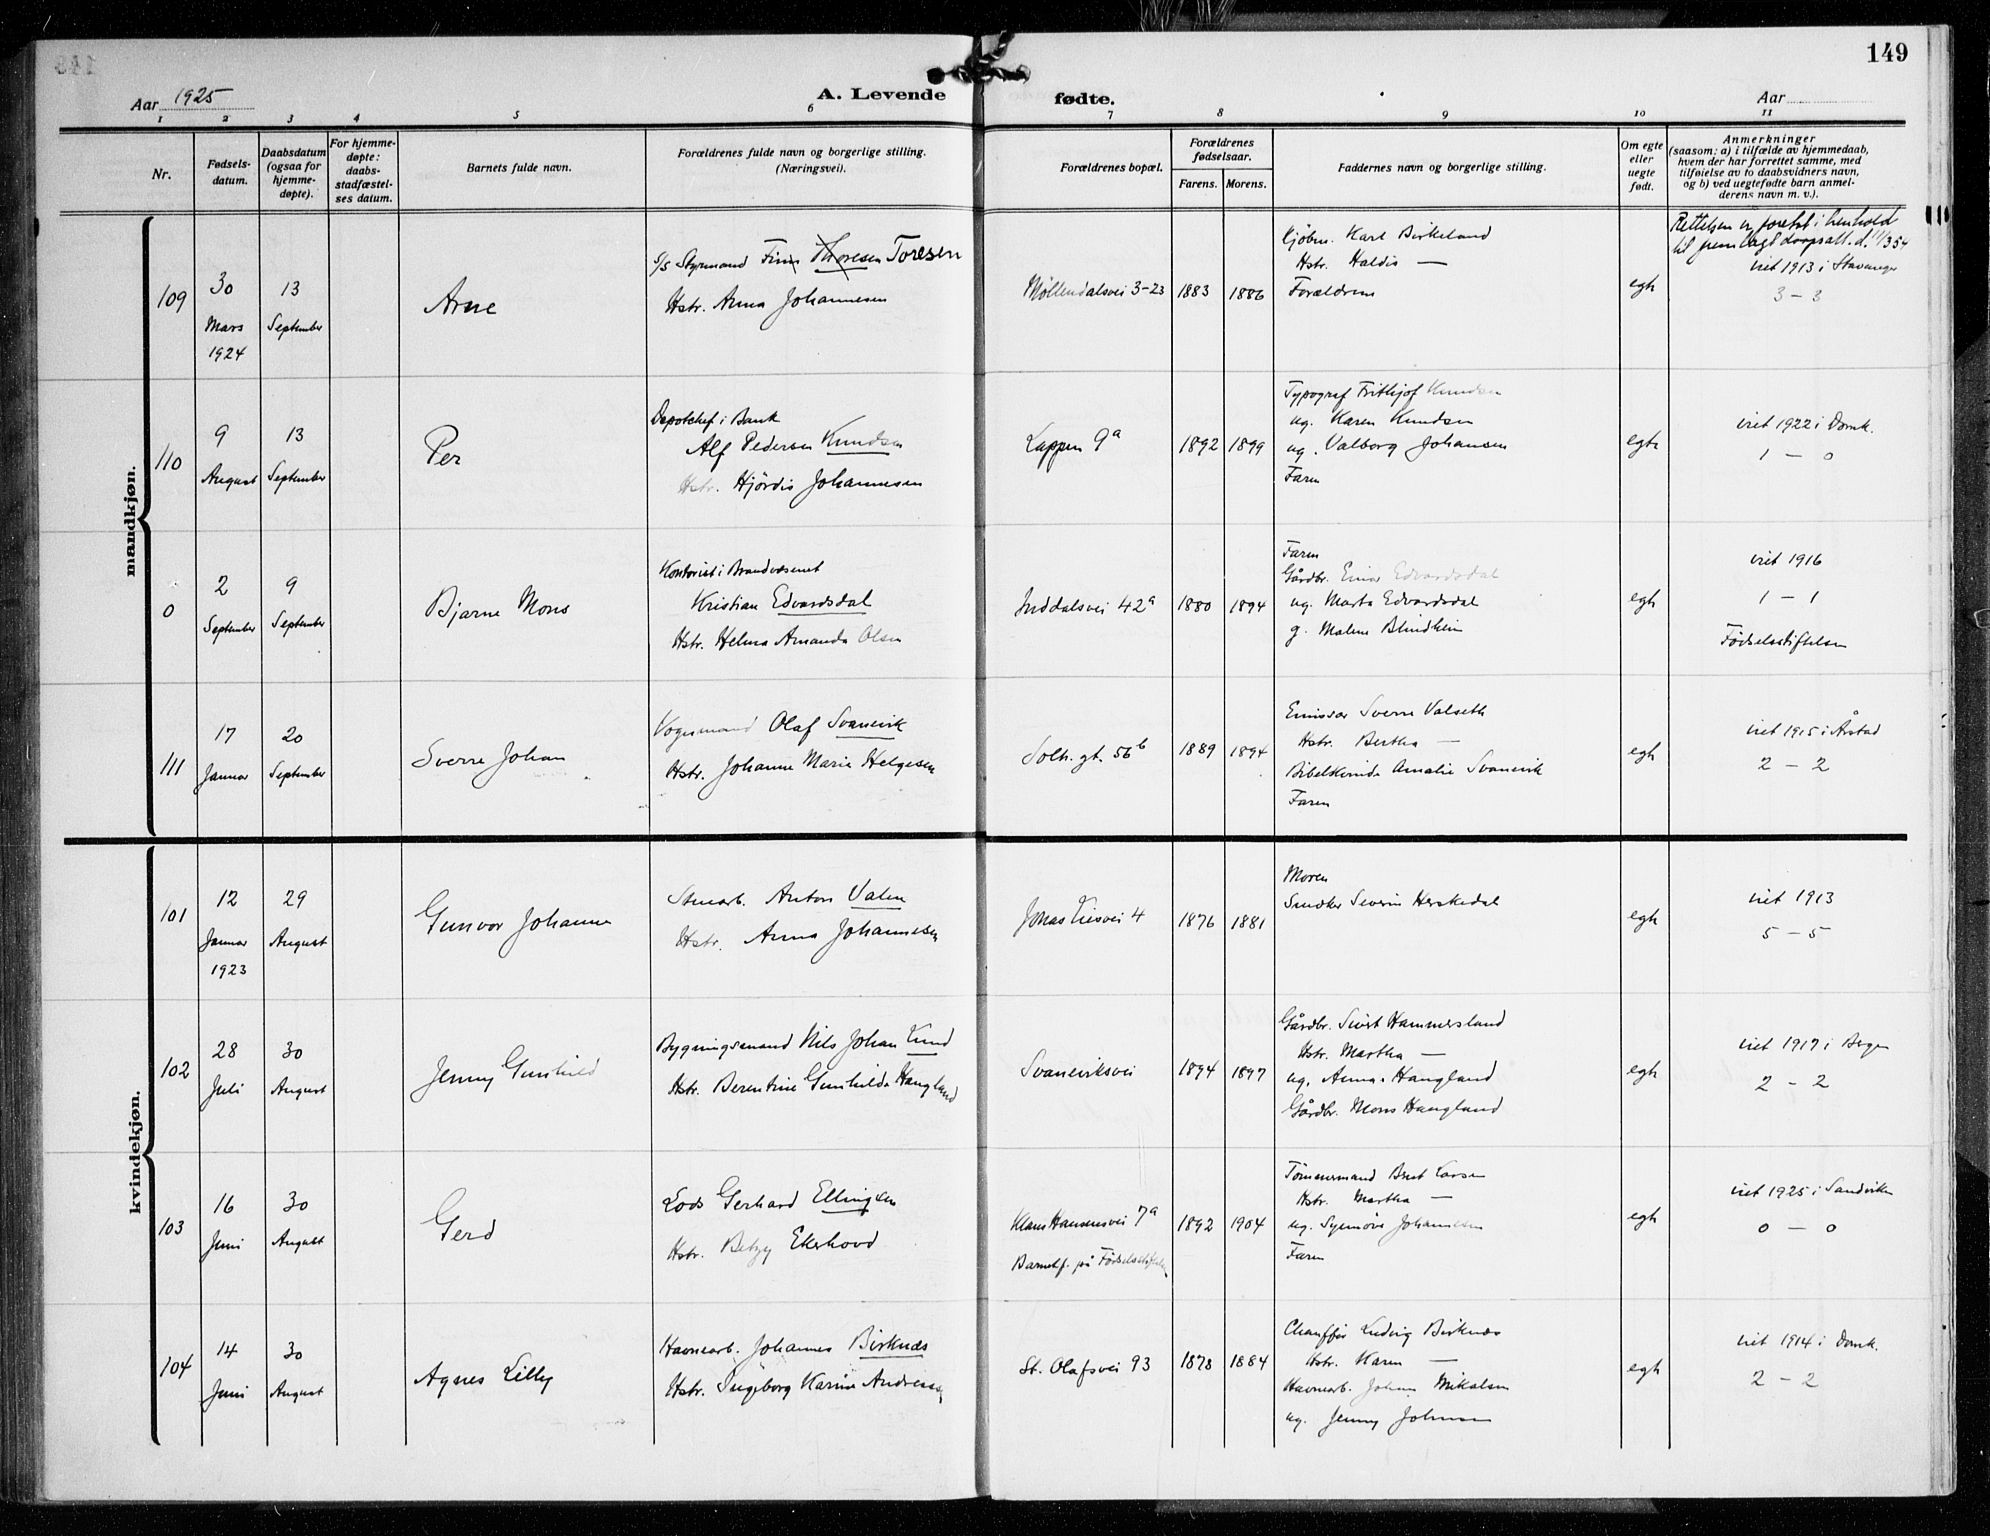 149
Aar 1925
A. Levende fødte.
Aar
1 2 3 4 5 6 7 8 9 10 11
Nr.
Fødselsdatum.
Daabsdatum (ogsaa for hjemmedøpte).
For hjemmedøpte: daabsstadfæstelses datum.
Barnets fulde navn.
Forældrenes fulde navn og borgerlige stilling. (Næringsvei).
Forældrenes bopæl.
Forældrenes fødselsaar.
Farens. Morens.
Faddernes navn og borgerlige stilling.
Om egte eller uegte født.
Anmerkninger (saasom: a) i tilfælde av hjemmedaab, hvem der har forrettet samme, med tilføielse av to daabsvidners navn, og b) ved uegtefødte barn anmelderens navn m. v.).
mandkjøn.
109
30 Mars 1924
13 September
Arne
S/S Styrmand Finn Thoresen Toresen
Hstr. Anna Johannesen
Møllendalsvei 3-23
1883 1886
Kjøbm. Karl Birkeland
Hstr. Haldis —
Forældrene
egte
Rettelsen er foretat i henhold
til fremlagt daapsatt. d. 11/3 54
viet 1913 i Stavanger
3 – 3
110
9 August
13 September
Per
Depotchef i Bank
Alf Pedersen Knudsen
Hstr. Hjørdis Johannesen
Lappen 9a
1892 1899
Typograf Frithjof Knudsen
ug. Karen Knudsen
ug. Valborg Johansen
Faren
egte
viet 1922 i Domk.
1 – 0
0
2 September
9 September
Bjarne Mons
Kontorist i Brandvæsenet
Kristian Edvardsdal
Hstr. Helma Amanda Olsen
Inddalsvei 42a
1880 1894
Faren
Gårdbr. Einar Edvardsdal
ug. Marta Edvardsdal
g. Malene Blindheim
egte
viet 1916
1 – 1
Fødselsstiftelsen
111
17 Januar
20 September
Sverre Johan
Vognmand Olaf Svanevik
Hstr. Johanne Marie Helgesen
Solh. gt. 56b
1889 1894
Emissær Sverre Valseth
Hstr. Bertha —
Bibelkvinde Amalie Svanevik
Faren
egte
viet 1915 i Årstad
2 – 2
kvindekjøn.
101
12 Januar 1923
29 August
Gunvor Johanne
Stenarb. Anton Valen
Hstr. Anna Johannesen
Jonas Liesvei 4
1876 1881
Moren
Snedker Severin Herskedal
egte
viet 1913
5 – 5
102
28 Juli
30 August
Jenny Gunhild
Bygningsmand Nils Johan Lund
Hstr. Berentine Gunhilda Haugland
Svaneviksvei
1894 1897
Gårdbr. Sivert Hammersland
Hstr. Martha —
ug. Anna Haugland
Gårdbr. Mons Haugland
egte
viet 1917 i Bergen
2 – 2
103
16 Juni
30 August
Gerd
Lods Gerhard Ellingsen
Hstr. Betzy Ekerhovd
Klaus Hansensvei 7a
Barnet f. på Fødselsstiftelsen
1892 1904
Tømmermand Bernt Larsen
Hstr. Martha —
ug. Synnøve Johannesen
Faren
egte
viet 1925 i Sandviken
0 – 0
104
14 Juni
30 August
Agnes Lilly
Havnearb. Johannes Birknæs
Hstr. Ingeborg Karine Andreasen
St. Olafsvei 93
1878 1884
Chauffør Ludvig Birknæs
Hstr. Karen —
Havnearb. Johan Mikalsen
ug. Jenny Johnsen
egte
viet 1914 i Domk.
2 – 2